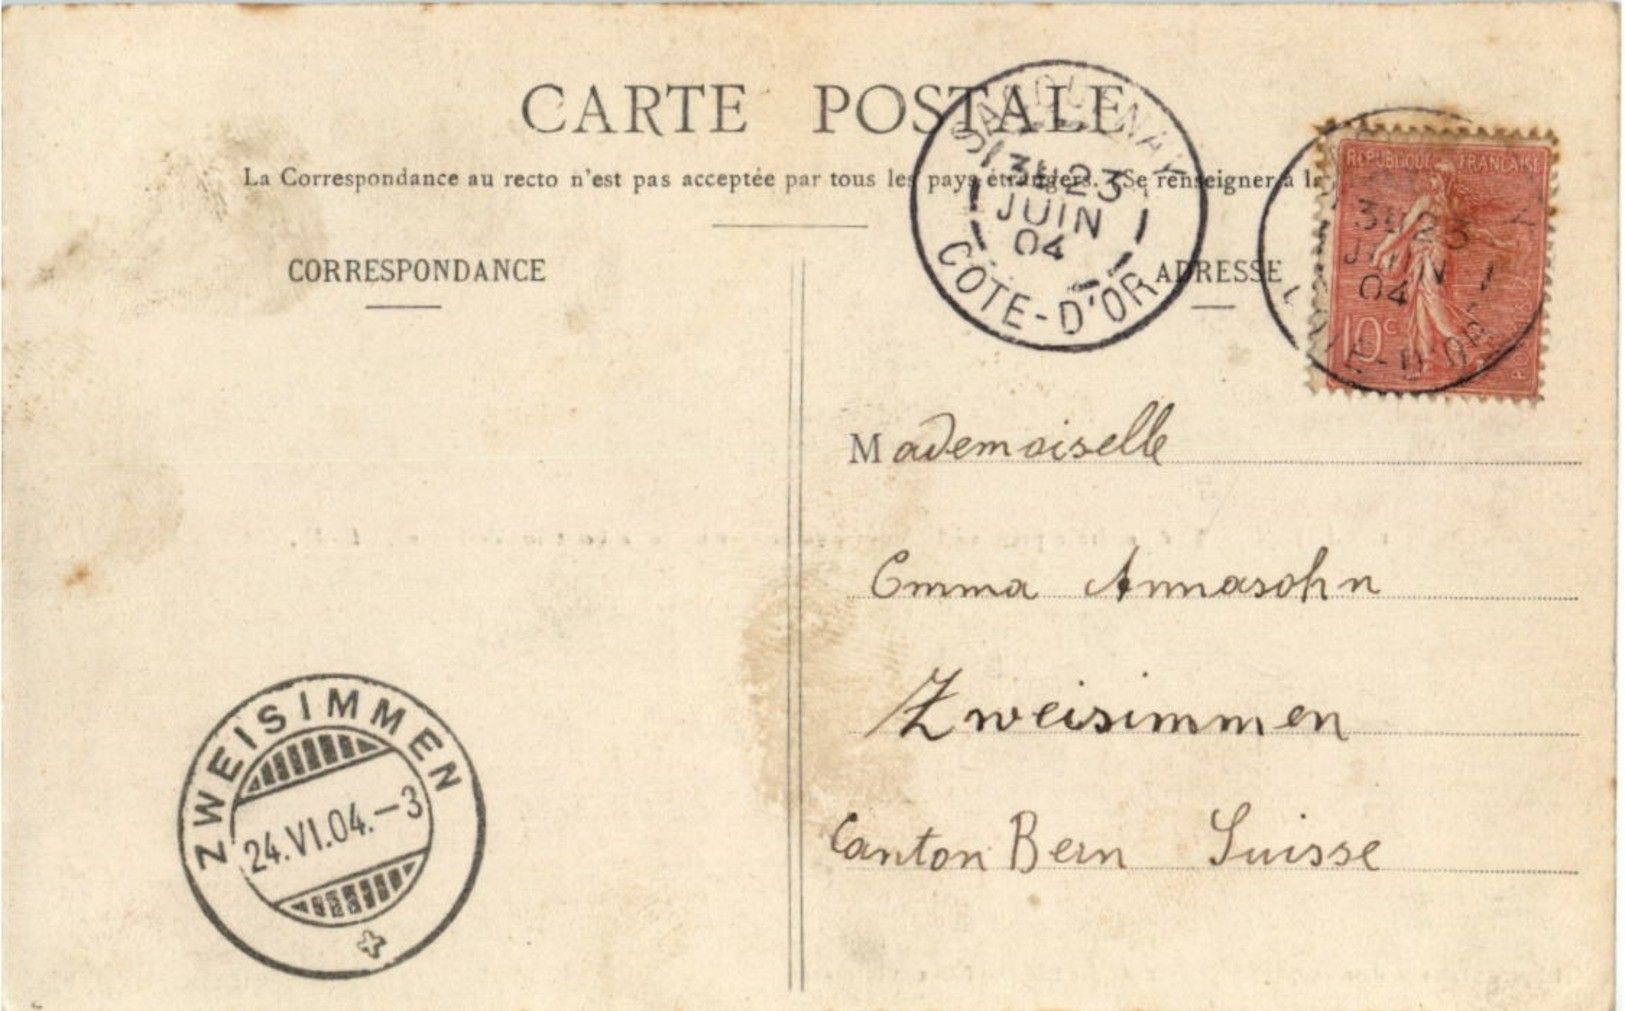 CARTE POSTALE
La Correspondance au recto n'est pas acceptée par tous les pays étrangers. Se renseigner à la
CORRESPONDANCE
ADRESSE
3E 23
JUIN
04
CÔTE-D'OR
REPUBLIQUE FRANÇAISE
10c
3E 23
JUIN
04
CÔTE-D'OR
Mademoiselle
Emma Annasohn
Zweisimmen
Canton Bern Suisse
ZWEISIMMEN
24.VI.04.-3